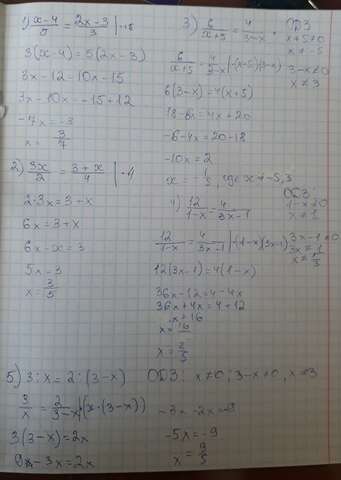 1) x-4/5 = 2x-3/3 | ·15
3(x-4) = 5(2x-3)
3x-12=10x-15
3x-10x=-15+12
-7x=-3
x = 3/7
2) 3x/2 = 3+x/4 | ·4
2·3x=3+x
6x=3+x
6x-x=3
5x=3
x = 3/5
3) 6/x+5 = 4/3-x
ОДЗ
x+5≠0
x≠-5
6/x+5 = 4/3-x | ·(x+5)(3-x)
3-x≠0
x≠3
6(3-x)=4(x+5)
18-6x=4x+20
-6-4x=20-18
-10x=2
x = -1/5, где x≠-5,3
4) 12/1-x = 4/3x-1
ОДЗ:
1-x≠0
x≠1
12/1-x = 4/3x-1 | ·(1-x)(3x-1)
3x-1≠0
3x≠1
x≠1/3
12(3x-1)=4(1-x)
36x-12=4-4x
36x+4x=4+12
x=16
x=2/5
5) 3:x=2:(3-x) ОДЗ: x≠0; 3-x≠0, x≠3
3/x = 2/3-x | ·(x·(3-x))
3(3-x)=2x
9-3x=2x
-3x-2x=-9
-5x=-9
x = 9/5